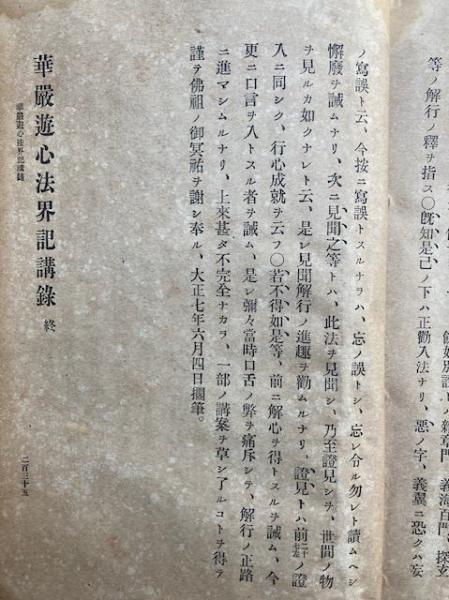 餘如別說トノ雜章門、義海百門、探玄
等ノ解行ノ釋ヲ指ス〇旣知是己ノ下ハ正勸入法ナリ、惡ノ字、義翼ニ恐クハ妄
ノ寫誤ト云、今按ニ寫誤トスルナラハ、忘ノ誤トシ、忘レ令ル勿レト讀ムヘシ
懈廢ヲ誡ムナリ、次ニ見聞之等トハ、此法ヲ見聞シ、乃至證見シテ、世間ノ物
ヲ見ルカ如クナレト云、是レ見聞解行ノ進趣ヲ勸ムルナリ、證見トハ前二十七左ノ證
入ニ同シク、行心成就ヲ云フ〇若不得如是等、前ニ解心ヲ得トスルヲ誡ム、今
更ニ口言ヲ入トスル者ヲ誡ム、是レ彌々當時口舌ノ弊ヲ痛斥シテ、解行ノ正路
ニ進マシムルナリ、上來甚タ不完全ナカラ、一部ノ講案ヲ草シ了ルコトヲ得テ
謹テ佛祖ノ御冥祐ヲ謝シ奉ル、大正七年六月四日擱筆。
華嚴遊心法界記講錄 終
華嚴遊心法界記講錄
二百三十五